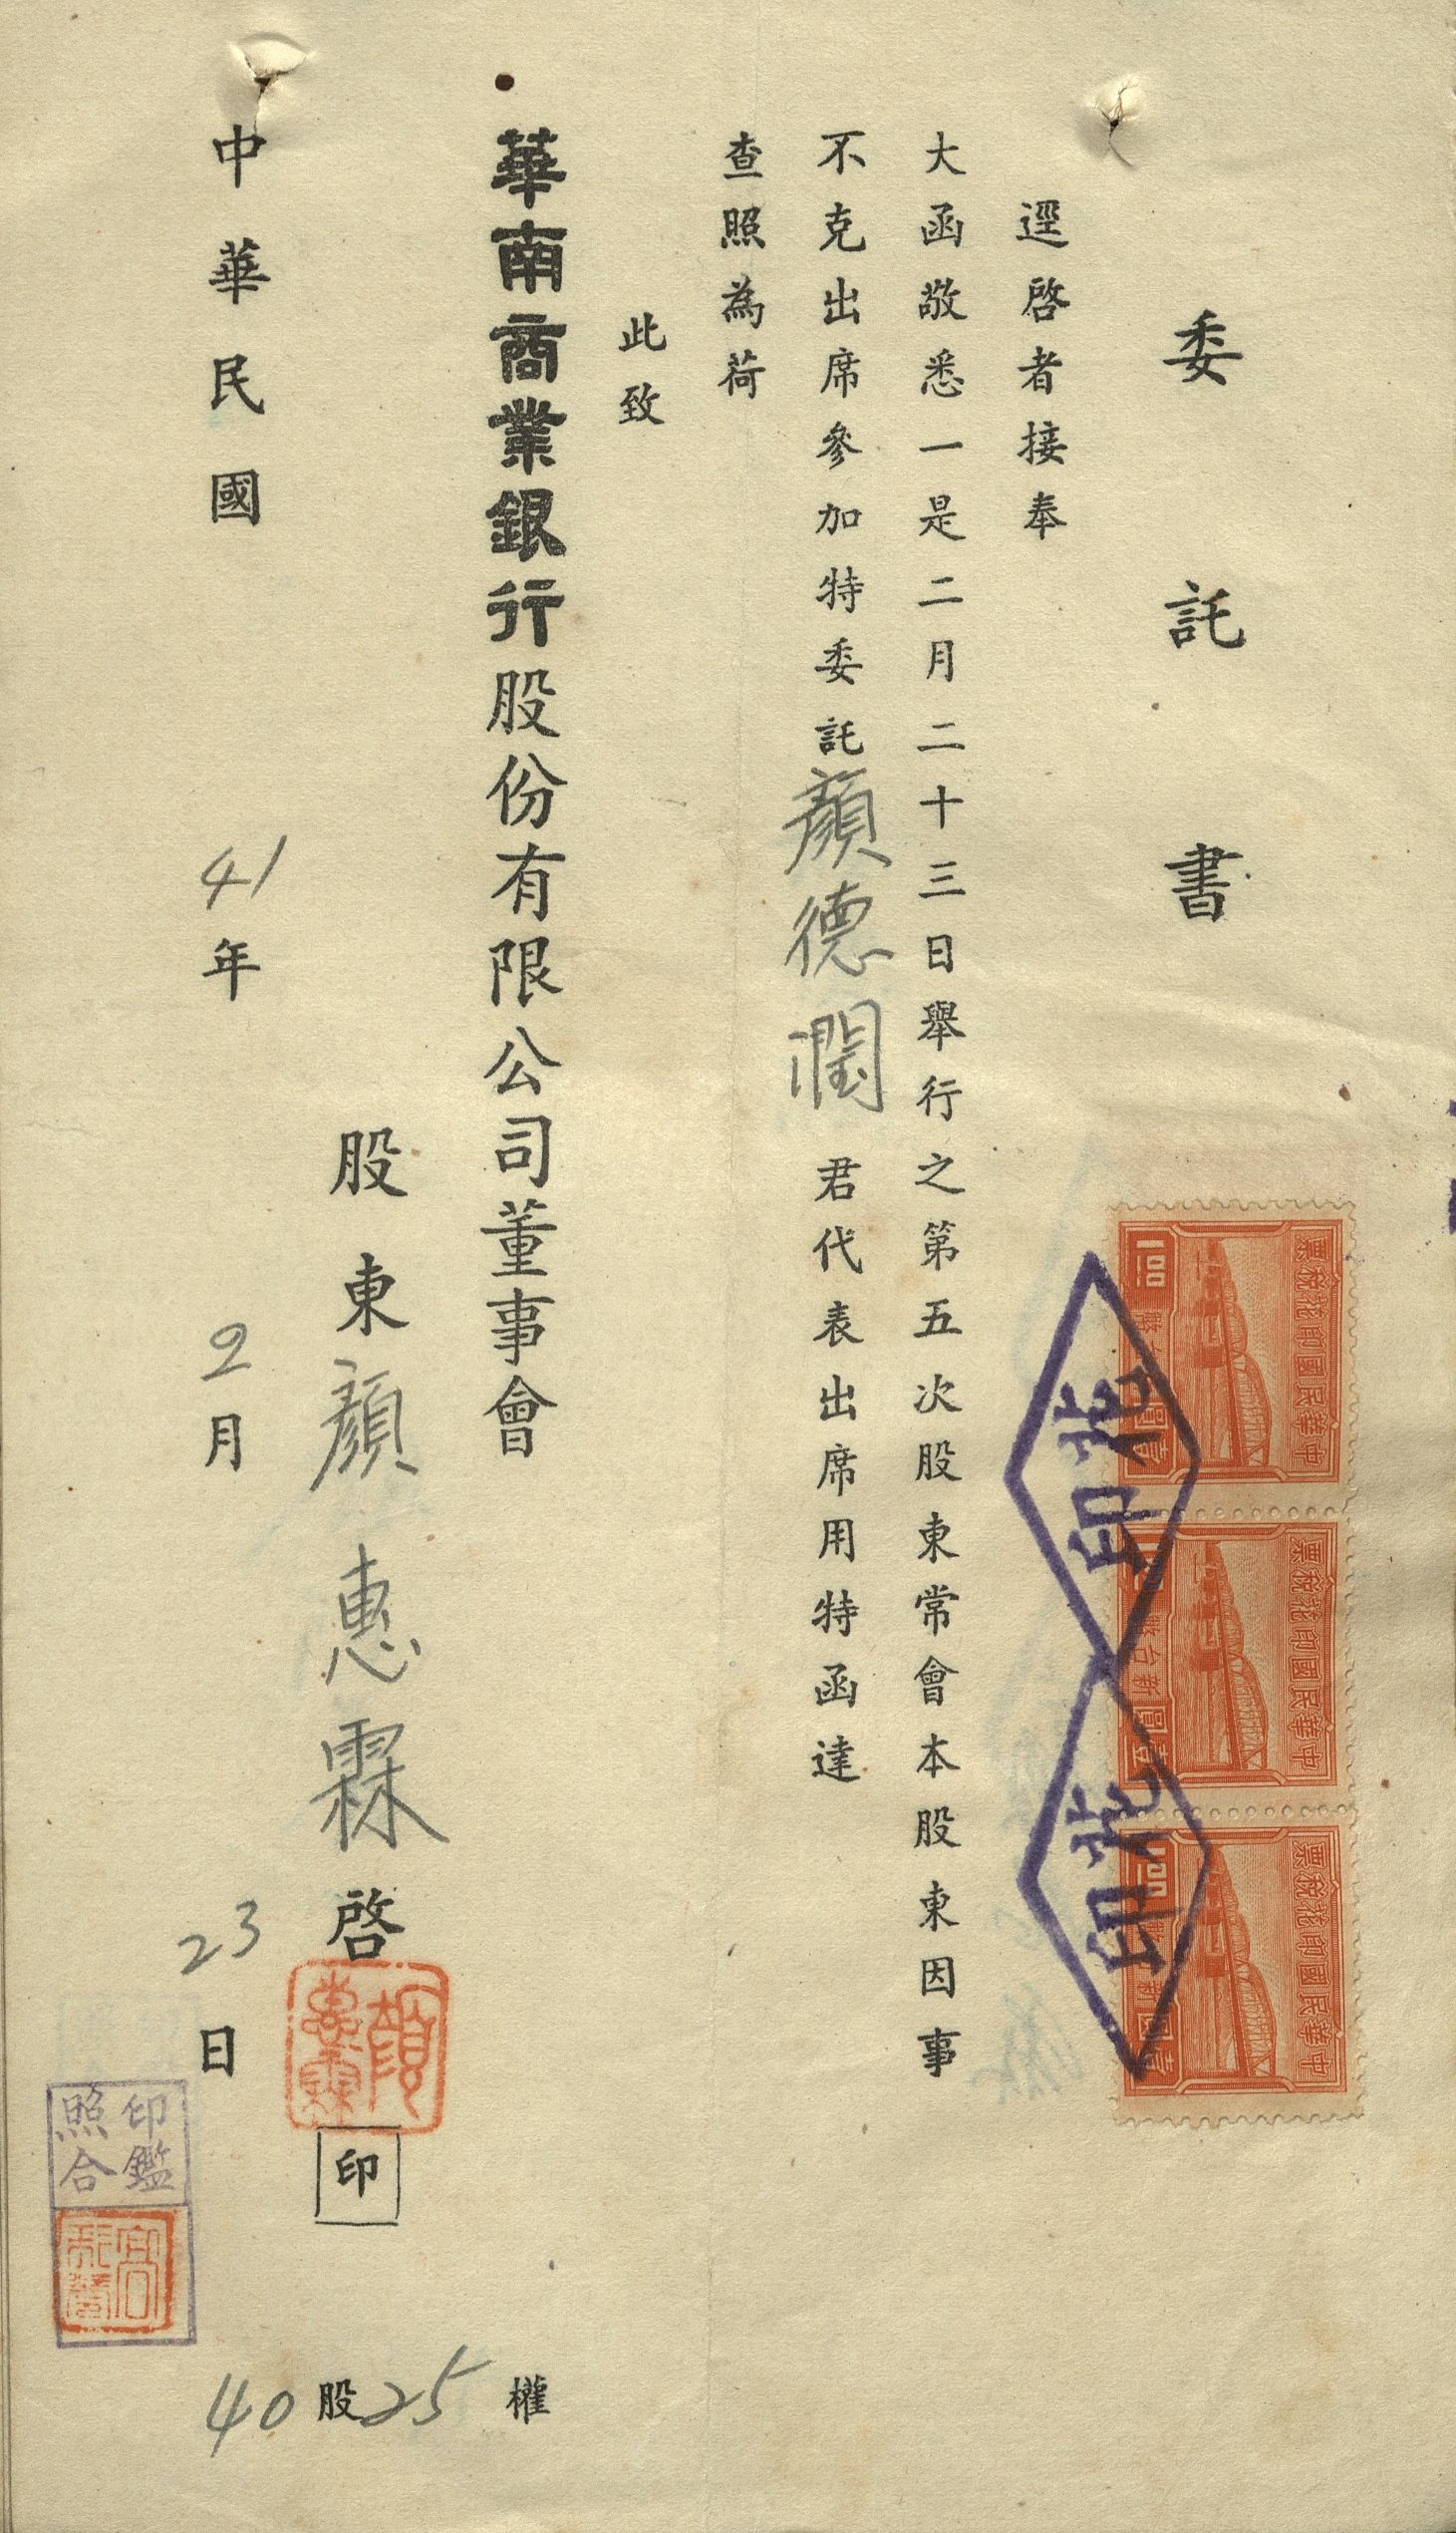 委託書
逕啓者接奉
大函敬悉一是二月二十三日舉行之第五次股東常會本股東因事
不克出席參加特委託顏德潤君代表出席用特函達
查照為荷
此致
華南商業銀行股份有限公司董事會
股東顏惠霖啓
印
中華民國41年2月23日
40股25權
中華民國印花稅票
1.00
中華民國印花稅票
新台幣壹圓
中華民國印花稅票
1.00
印花
印花
顏惠霖
印鑑
照合